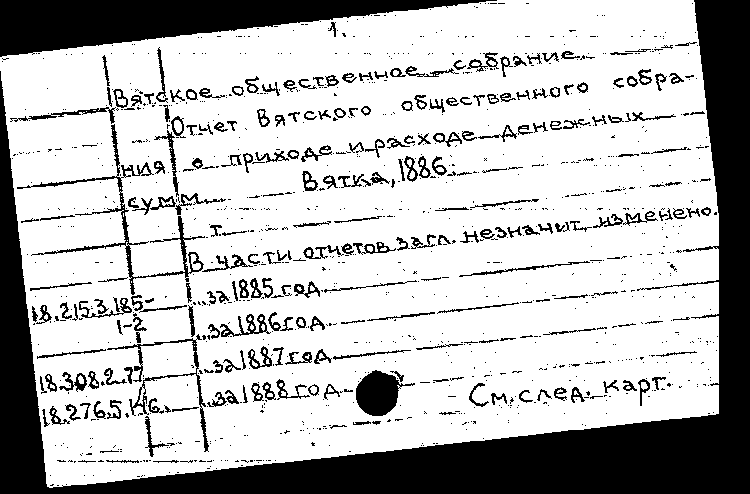 1.
Вятское общественное собрание
Отчет Вятского общественного собра-
ния о приходе и расходе денежных
сумм. Вятка, 1886.
т.
В части отчетов загл. незначит. изменено.
18.215.3.185- ...за 1885 год
1-2 ...за 1886 год
...за 1887 год
18.308.2.77
18.276.5.146. ...за 1888 год
См. след. карт.